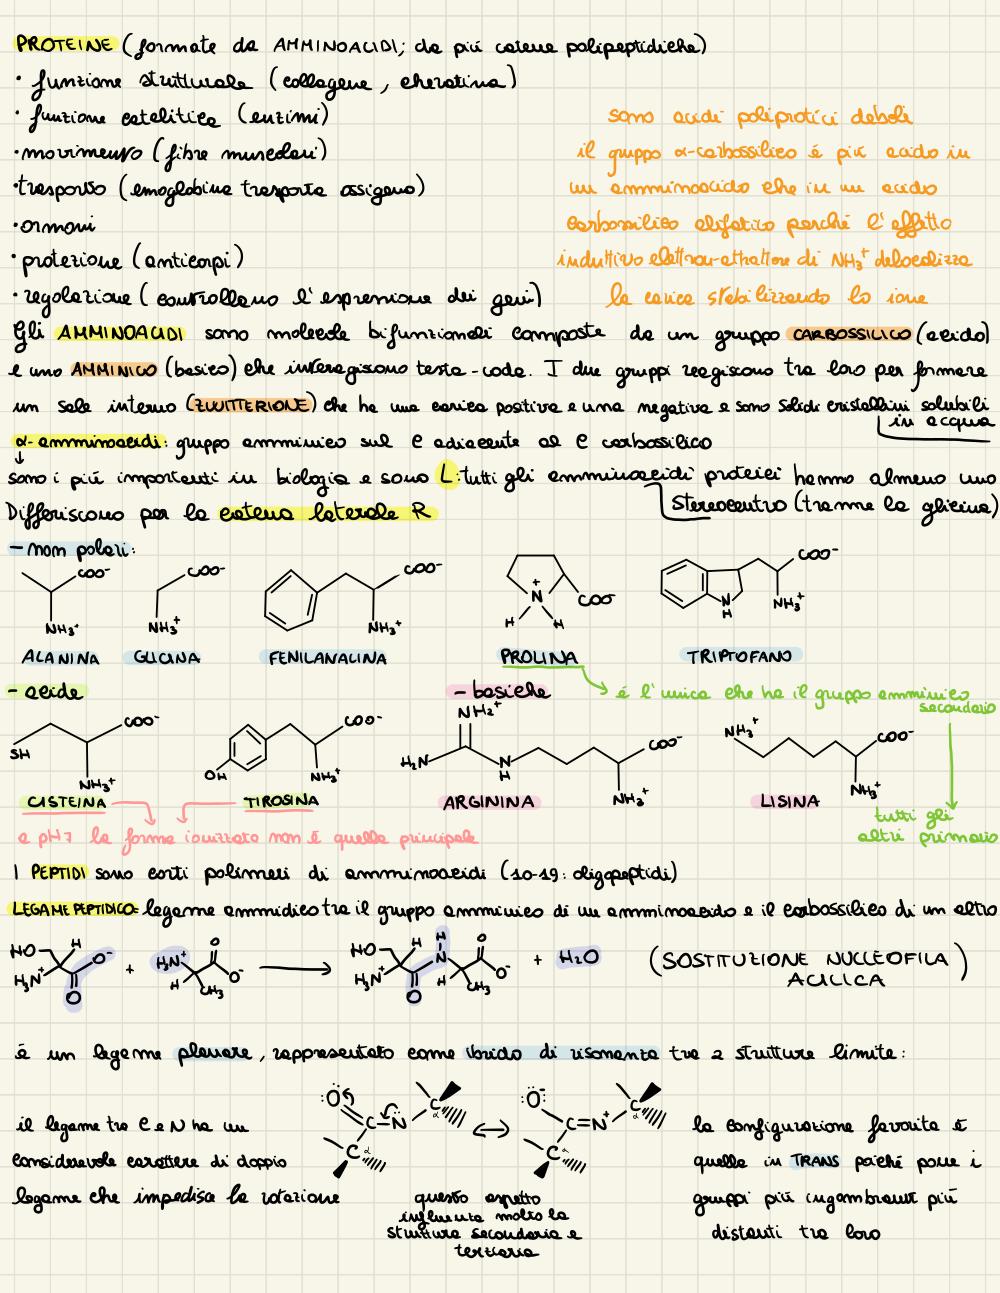 PROTEINE (formate da AMMINOACIDI; da più catene polipeptidiche)
• funzione strutturale (collagene, cheratina)
• funzione catalitica (enzimi)
• movimento (fibre muscolari)
• trasporto (emoglobina trasporta ossigeno)
• ormoni
• protezione (anticorpi)
• regolazione (controllano l'espressione dei geni)
sono acidi poliprotici deboli
il gruppo α-carbossilico é più acido in
un amminoacido che in un acido
carbossilico alifatico perché l'effetto
induttivo elettron-attrattore di NH₃⁺ delocalizza
la carica stabilizzando lo ione
Gli AMMINOACIDI sono molecole bifunzionali composte da un gruppo CARBOSSILICO (acido)
e uno AMMINICO (basico) che interagiscono testa-coda. I due gruppi reagiscono tra loro per formare
un sale interno (ZWITTERIONE) che ha una carica positiva e una negativa e sono solidi cristallini solubili
in acqua
α-amminoacidi: gruppo amminico sul C adiacente al C carbossilico
sono i più importanti in biologia e sono L: tutti gli amminoacidi proteici hanno almeno uno
stereocentro (tranne la glicina)
Differiscono per la catena laterale R
- non polari:
COO⁻ COO⁻ COO⁻ COO⁻ COO⁻
NH₃⁺ NH₃⁺ NH₃⁺ N⁺ H H N H NH₃⁺
ALANINA GLICINA FENILANALINA PROLINA TRIPTOFANO
- acide - basiche é l'unica che ha il gruppo amminico
secondario
SH COO⁻ NH₃⁺ OH COO⁻ NH₃⁺ NH₂⁺ H₂N N H COO⁻ NH₃⁺ NH₃⁺ COO⁻ NH₃⁺
CISTEINA TIROSINA ARGININA LISINA
tutti gli
altri primario
a pH 7 la forma ionizzata non è quella principale
I PEPTIDI sono corti polimeri di amminoacidi (10-19: oligopeptidi)
LEGAME PEPTIDICO = legame ammidico tra il gruppo amminico di un amminoacido e il carbossilico di un altro
HO H O⁻ H₃N⁺ O + H₃N⁺ O O⁻ H CH₃ HO H H N O H₃N⁺ O H CH₃ O⁻ + H₂O (SOSTITUZIONE NUCLEOFILA
ACILICA)
é un legame planare, rappresentato come ibrido di risonanza tra 2 strutture limite:
:O C N C α C α ↔ :O⁻ C=N⁺ C α C α
il legame tra C e N ha un
considerevole carattere di doppio
legame che impedisce la rotazione
questo aspetto
influenza molto la
struttura secondaria e
terziaria
la configurazione favorita è
quella in TRANS poiché pone i
gruppi più ingombranti più
distanti tra loro